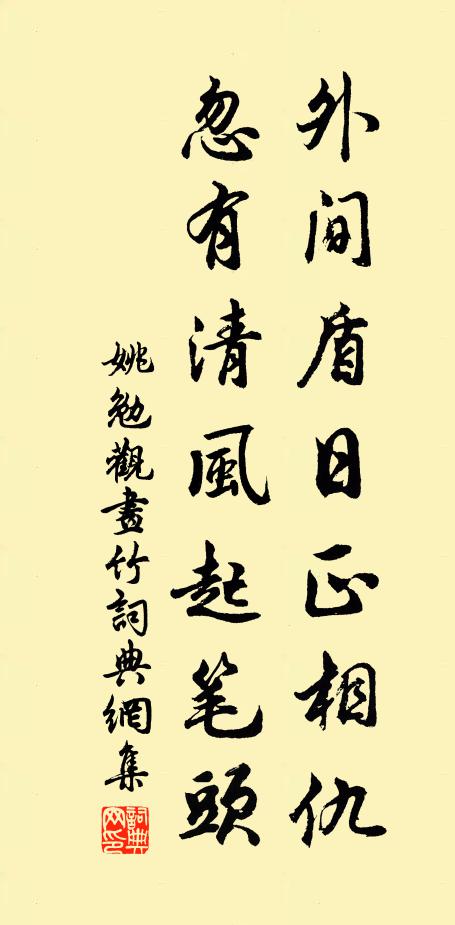 外间盾日正相仇
忽有清風起笔頭
姚勉觀畫竹詞典網集
詞典網印